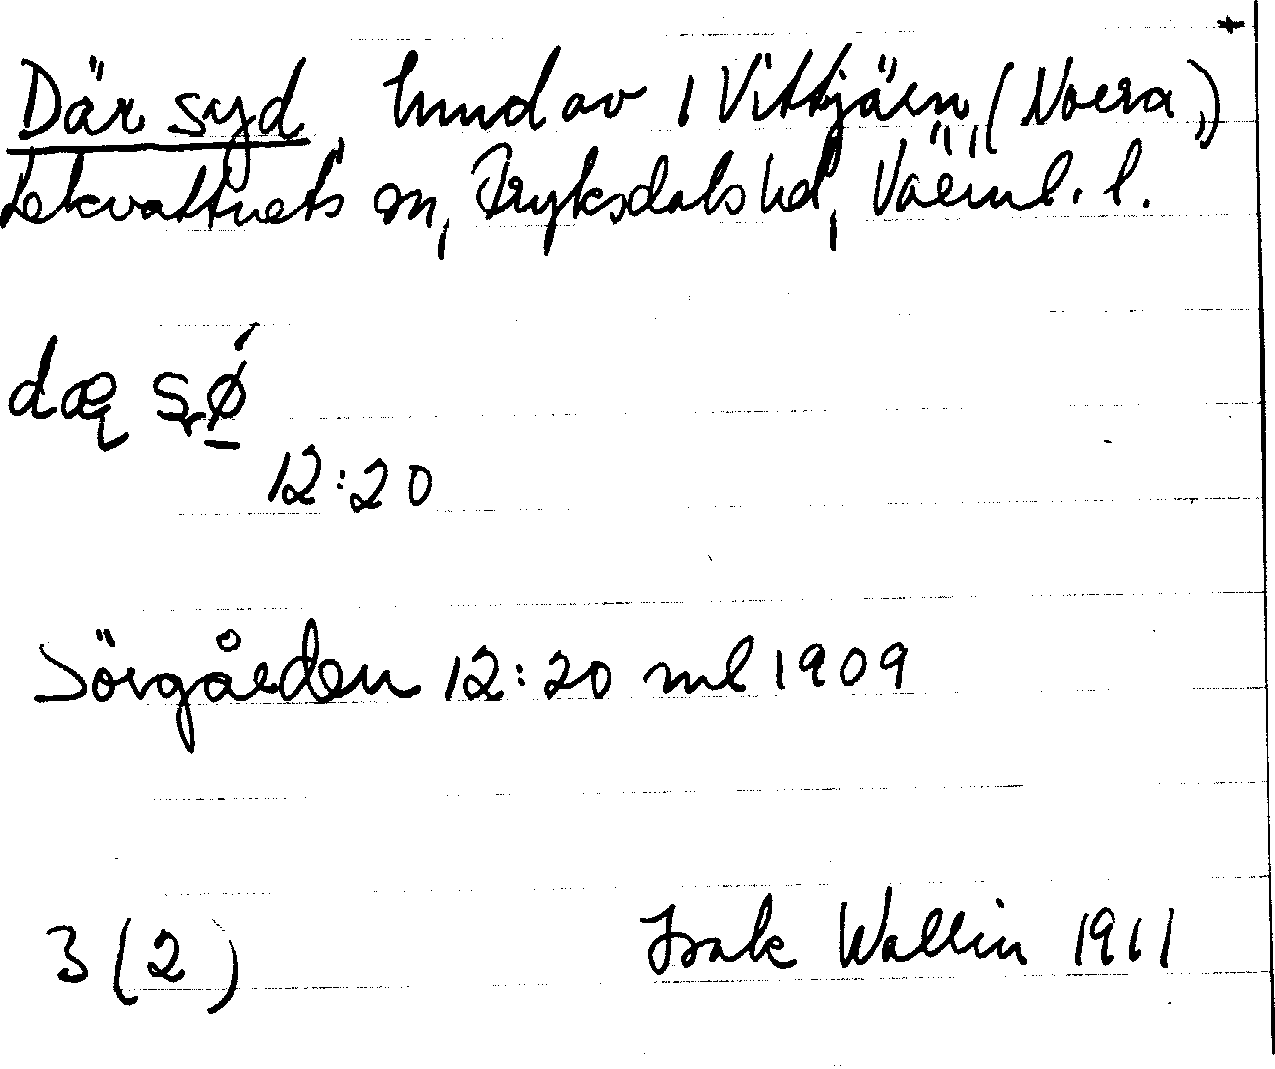 Där syd, hmd av 1 Vittjärn, (Norra,)
Lekvattnets sn, Fryksdals hd, Värml. l.
dæ sø
12:20
Sörgården 12:20 ml 1909
3 (2) Isak Wallin 1911